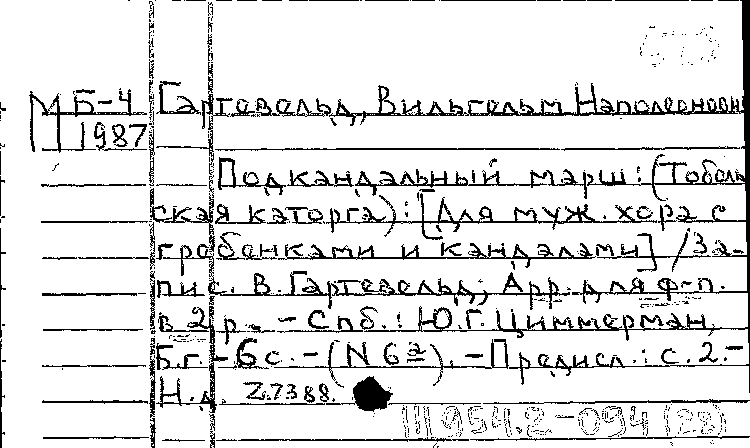 М Б-4 Гартевельд, Вильгельм Наполеонови
1987
Подкандальный марш: (Тоболь
ская каторга): [Для муж. хора с
гребенками и кандалами] / За-
пис. В. Гартевельд; Арр. для ф-п.
в 2 р. - Спб.: Ю.Г. Циммерман,
Б.г. - 6 с. - (N 6а). - Предисл.: с. 2. -
Н.д. Z.7388.
III 954.2-094 (28)